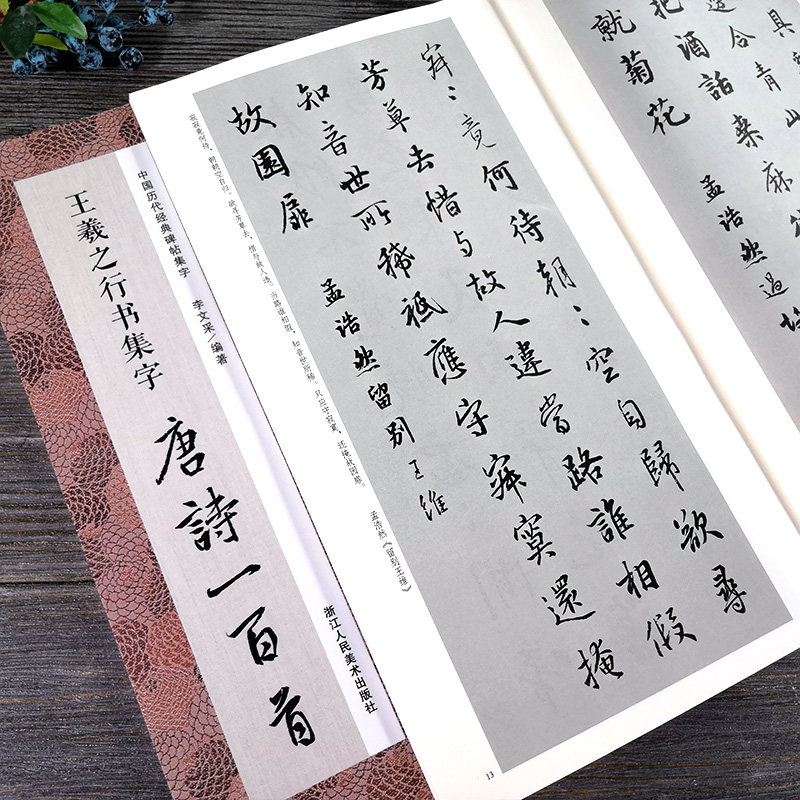 具
邊合青山
把酒話桑麻
就菊花
孟浩然過故
寂〻竟何待朝〻空自歸欲尋
芳草去惜与故人違當路誰相假
知音世所稀祗應守寂寞還掩
故園扉
孟浩然留别王維
寂寂竟何待，朝朝空自归。欲寻芳草去，惜与故人违。当路谁相假，知音世所稀。只应守寂寞，还掩故园扉。 孟浩然《留别王维》
13
中国历代经典碑帖集字 李文采/编著
王羲之行书集字
唐詩一百首
浙江人民美术出版社